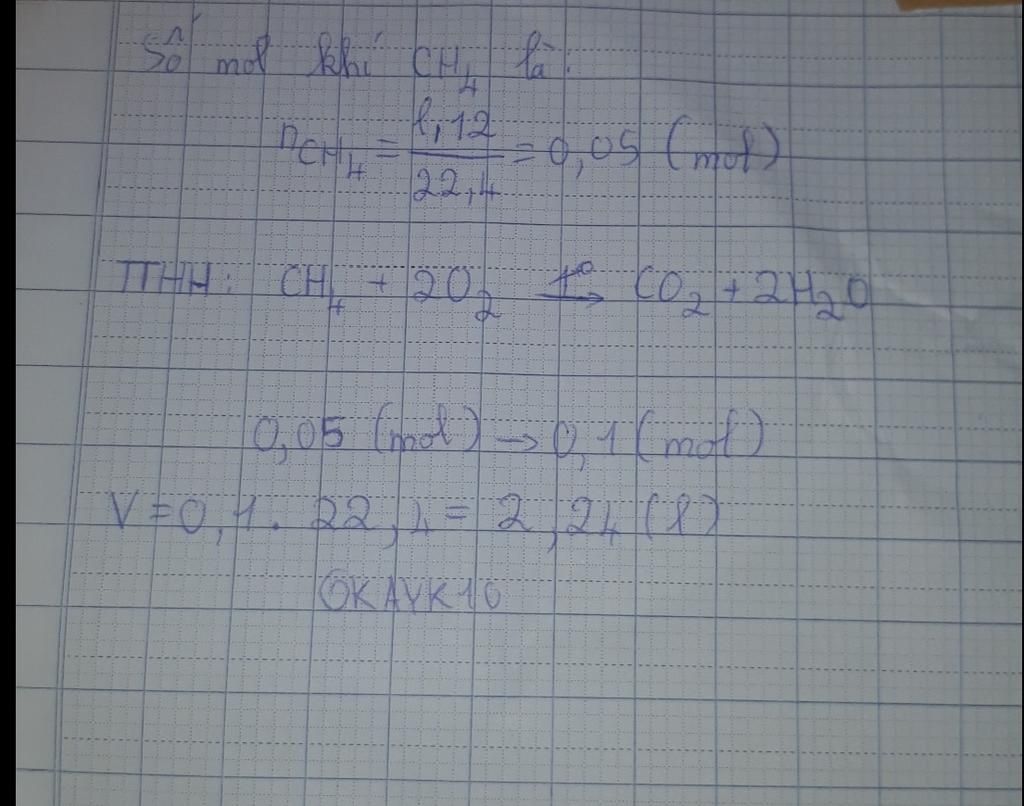 Số mol khí CH₄ là:
nCH₄ = 1,12/22,4 = 0,05 (mol)
PTHH: CH₄ + 2O₂ t° → CO₂ + 2H₂O
0,05 (mol) → 0,1 (mol)
V = 0,1 . 22,4 = 2,24 (l)
OKAYK10